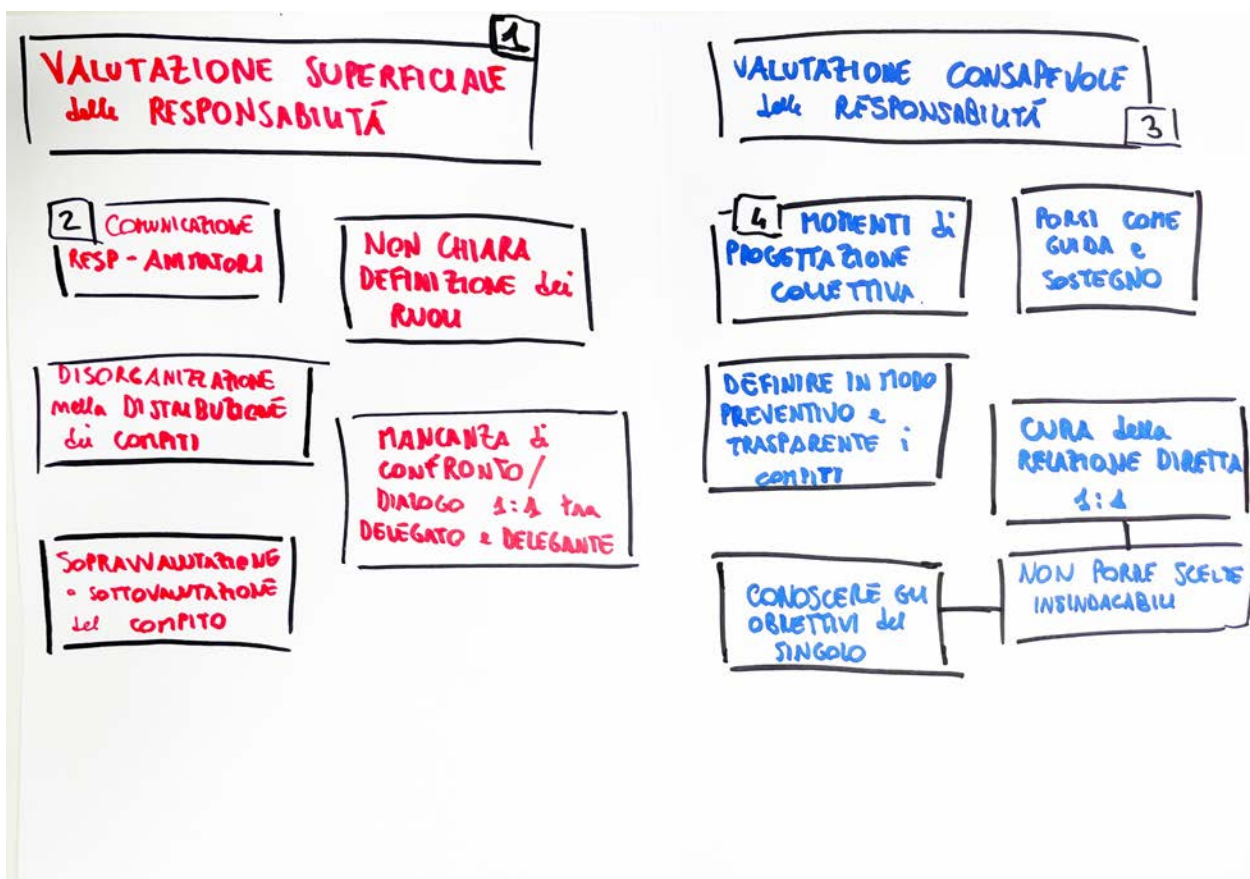 1
VALUTAZIONE SUPERFICIALE
delle RESPONSABILITÁ
2 COMUNICAZIONE
RESP - ANIMATORI
NON CHIARA
DEFINIZIONE dei
RUOLI
DISORGANIZZAZIONE
nella DISTRIBUZIONE
dei COMPITI
MANCANZA di
CONFRONTO/
DIALOGO 1:1 tra
DELEGATO e DELEGANTE
SOPRAVVALUTAZIONE
o SOTTOVALUTAZIONE
del COMPITO
VALUTAZIONE CONSAPEVOLE
delle RESPONSABILITÁ
3
4 MOMENTI di
PROGETTAZIONE
COLLETTIVA
PORSI COME
GUIDA e
SOSTEGNO
DEFINIRE IN MODO
PREVENTIVO e
TRASPARENTE i
COMPITI
CURA della
RELAZIONE DIRETTA
1:1
CONOSCERE GLI
OBIETTIVI del
SINGOLO
NON PORRE SCELTE
INSINDACABILI